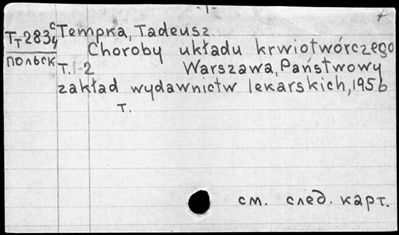 -1-
Тт283с/4 Tempka, Tadeusz
польск Choroby układu krwiotwórczego
T. 1-2 Warszawa, Państwowy
zakład wydawnictw lekarskich, 1956
т.
см. след. карт.